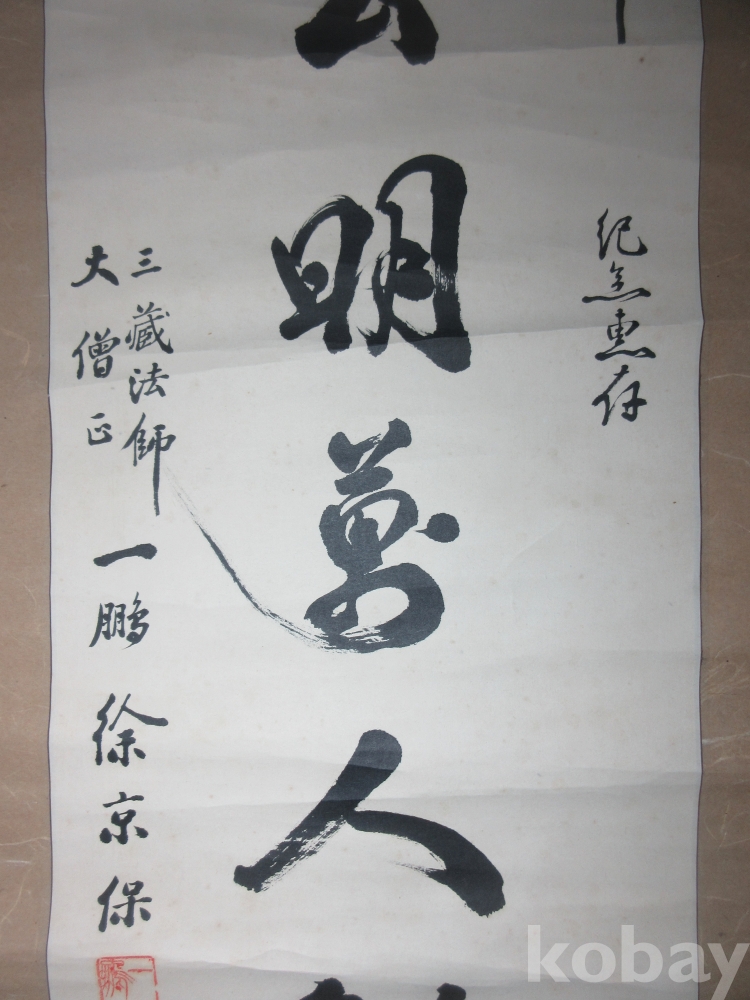 紀念惠存
明萬人
三藏法師
大僧正
一鵬 徐京保
kobay